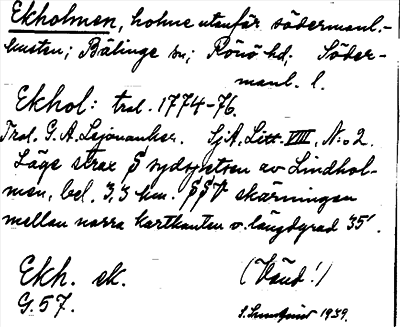 Ekholmen, holme utanför södermanl.-
kusten; Bälinge sn; Rönö hd. Söder-
manl. l.
Ekhol: trol. 1774-76.
Trol. G. A. Lejonanker. SjA, Litt. VIII, N:o 2.
Läge strax S sydspetsen av Lindhol-
men, bel. 3,3 km. SSV skärningen
mellan norra kartkanten o. längdgrad 35'.
Ekh. ek. (Vänd!)
G. 57. 1939.